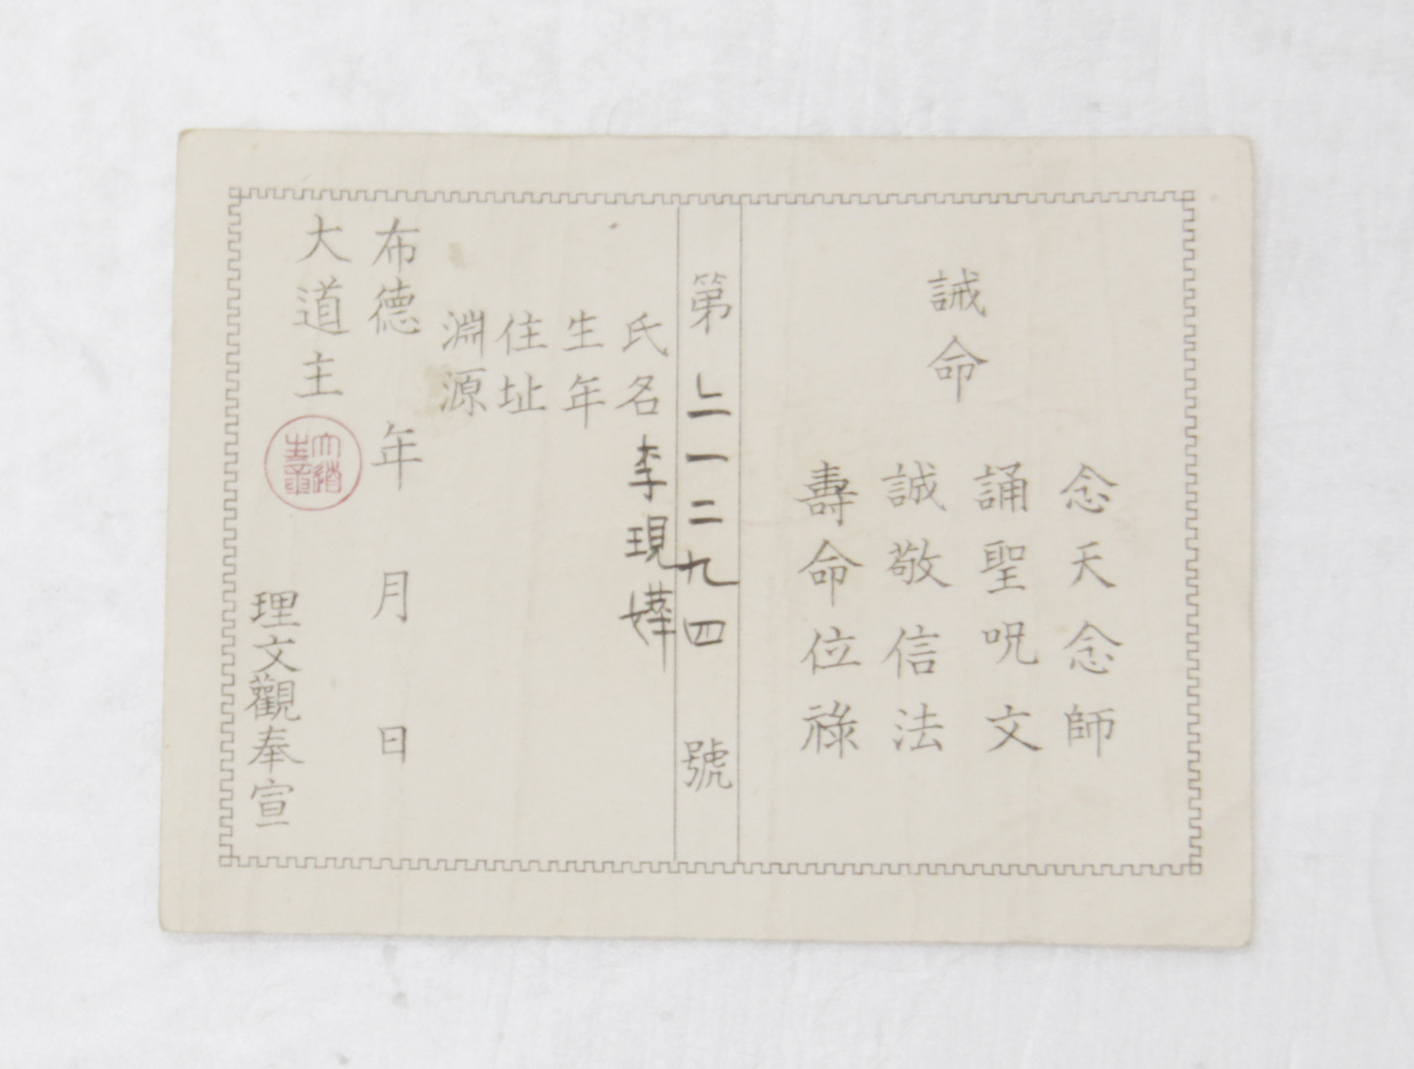 誡命
念天念師
誦聖呪文
誠敬信法
壽命位祿
第二一二九四號
氏名 李現
生年
住址
淵源
布德 年 月 日
大道主
理文觀奉宣